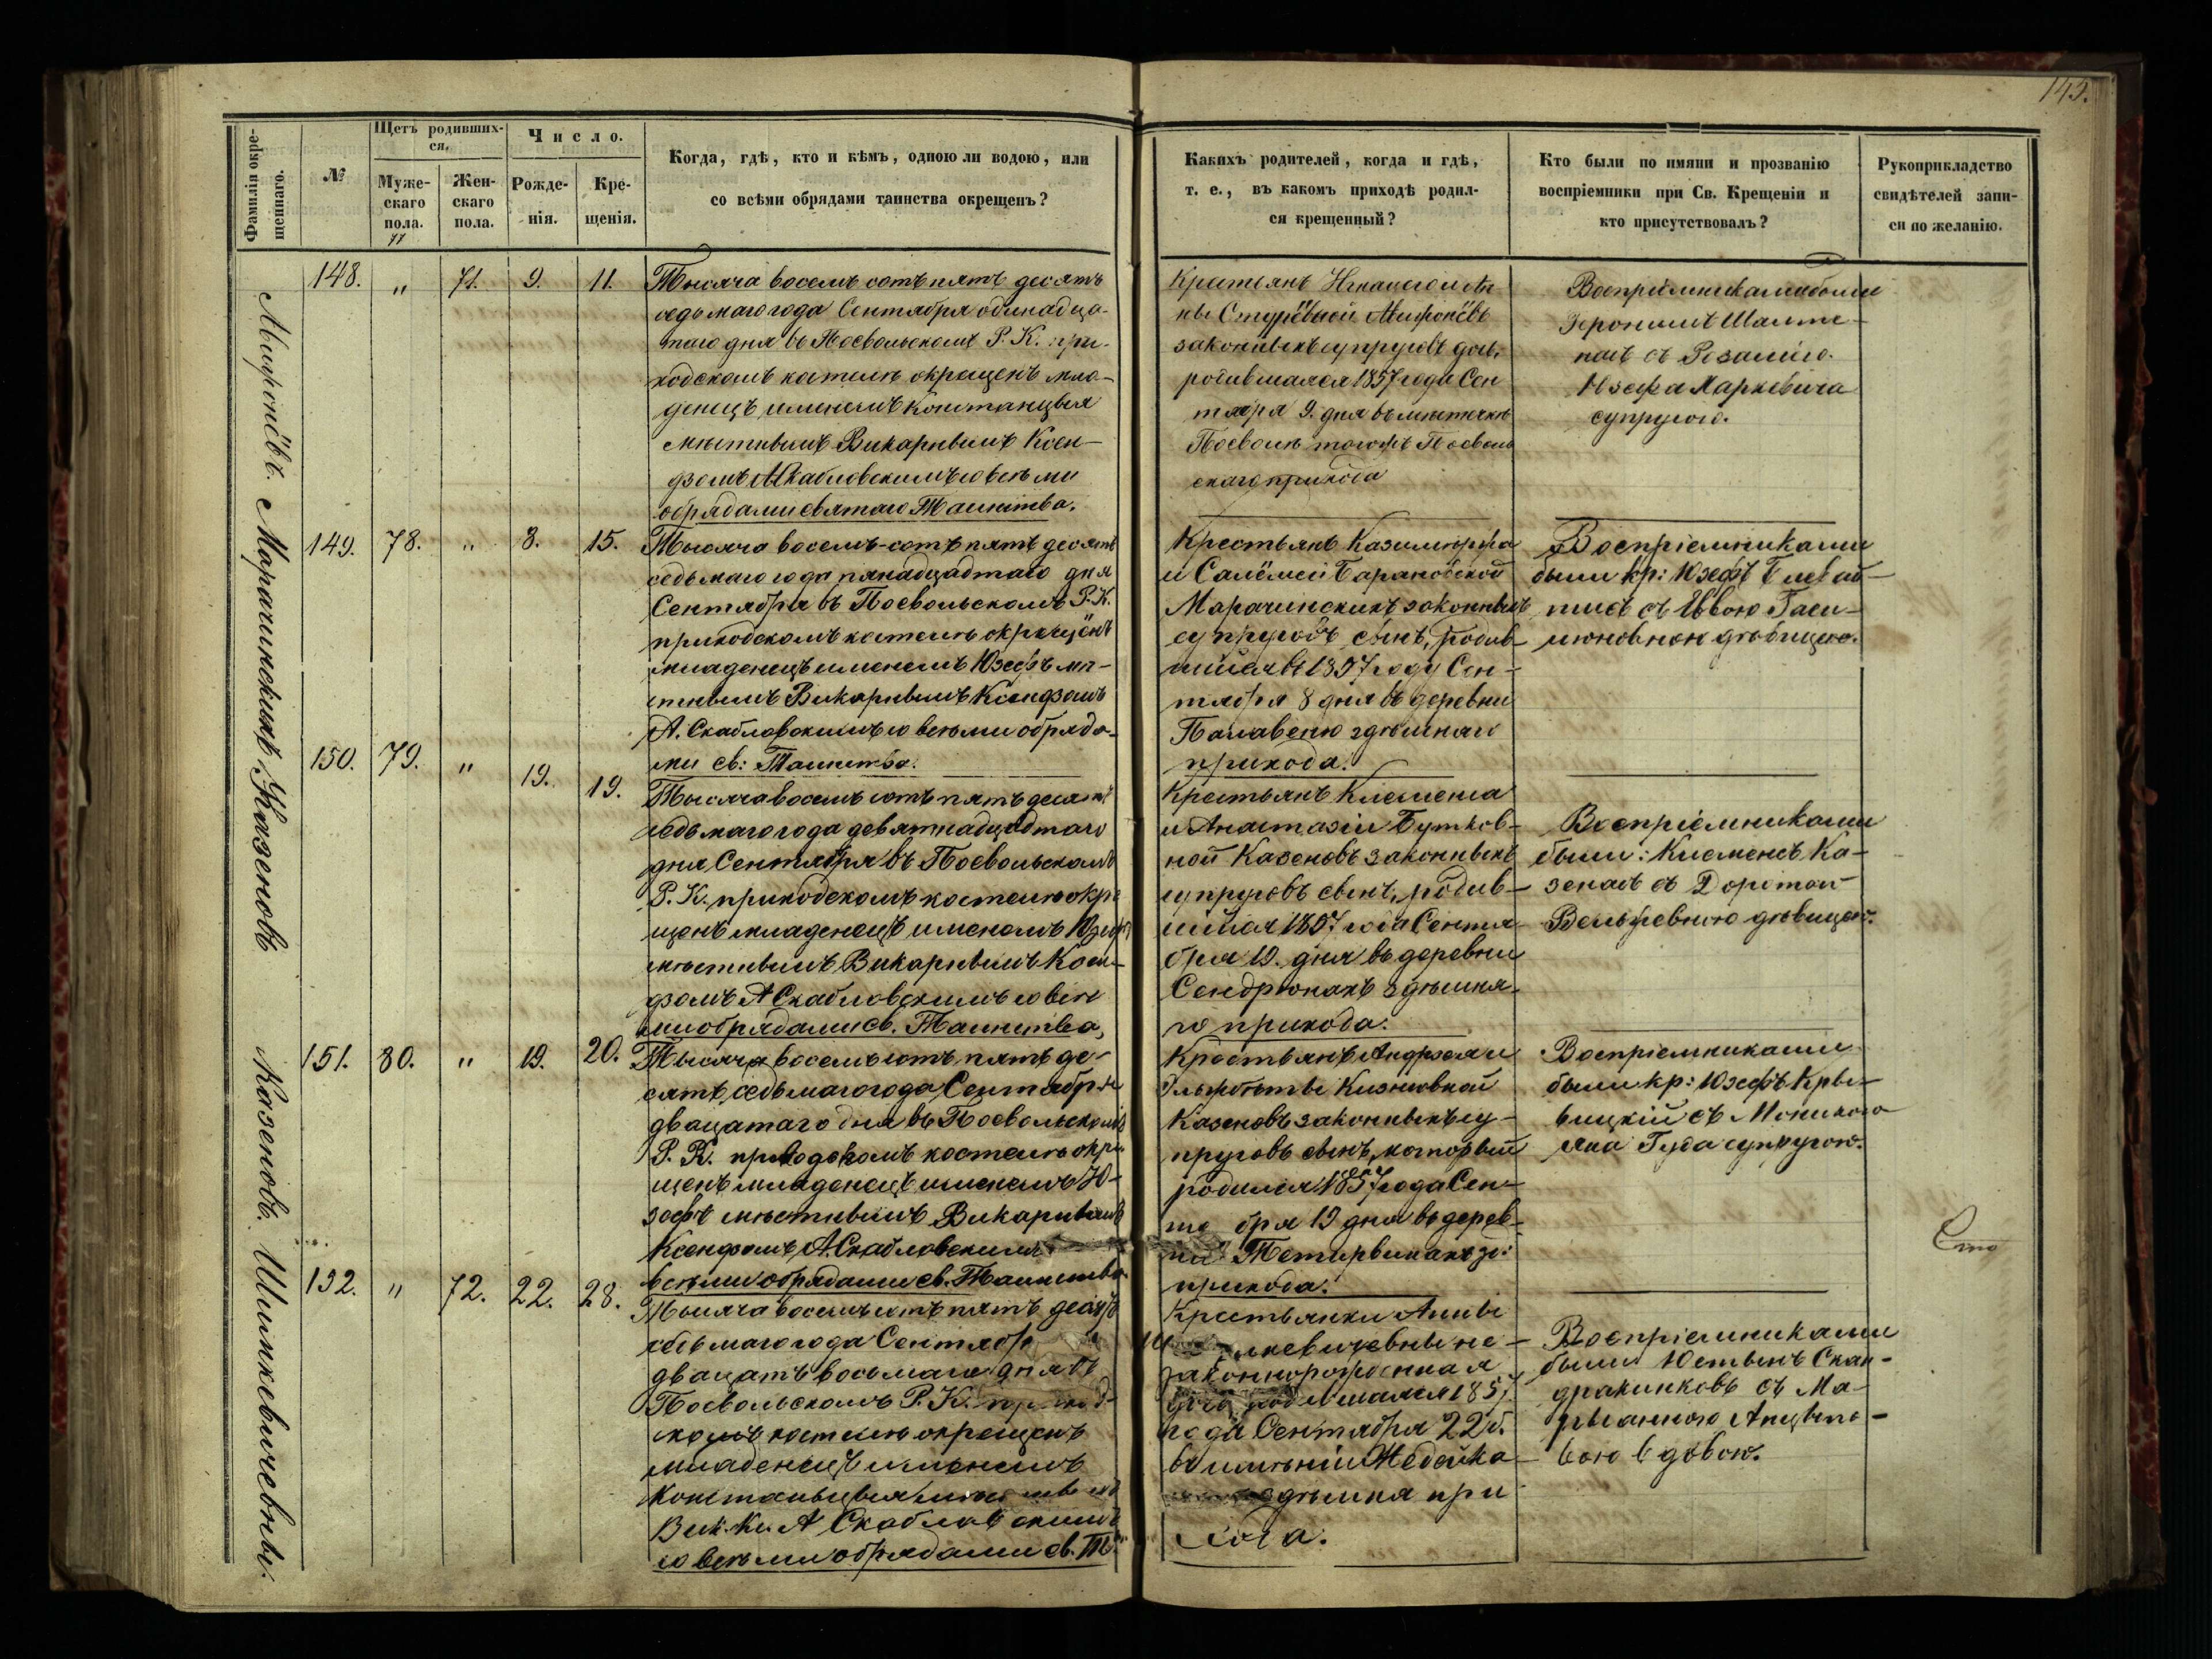 149.
Фамилія окре-
щеннаго.
№
Щетъ родивших-
ся.
Муже-
скаго
пола.
77
Жен-
скаго
пола.
Число.
Рожде-
нія.
Кре-
щенія.
Когда, гдѣ, кто и кѣмъ, одною ли водою, или
со всѣми обрядами таинства окрещенъ?
Какихъ родителей, когда и гдѣ,
т. е., въ какомъ приходѣ родил-
ся крещенный?
Кто были по имяни и прозванію
воспріемники при Св. Крещеніи и
кто присутствовалъ?
Рукоприкладство
свидѣтелей запи-
си по желанію.
Мифонёвъ.
148. " 71. 9. 11.
Тысяча восемь сотъ пять десятъ
седьмаго года Сентября одинадца-
таго дня въ Посвольскомъ Р. К. при-
ходскомъ костелѣ окрещенъ мла-
денецъ именемъ Констанцыя
мѣстнымъ Викарнымъ Ксен-
дзомъ А Скабловскимъ со всѣми
обрядами святаго Таинства.
Крестьянъ
Мифонёвъ
законныхъ супруговъ дочь,
родившаяся 1857 года Сен
тября 9. дня въ мѣстечкѣ
Посволѣ тогожъ Посволь
скаго прихода
Воспріемниками были
Іеронимъ
съ Розалією
Юзефа Маркевича
супругою.
Марачинскихъ
149. 78. " 8. 15.
Тысяча восемь-сотъ пять десятъ
седьмаго года пянадцадтаго дня
Сентября въ Посвольскомъ Р. К.
приходскомъ костелѣ окрещёнъ
младенецъ именемъ Юзефъ мѣ-
стнымъ Викарнымъ Ксендзомъ
А. Скабловскимъ со всѣми обряда-
ми св: Таинства.
Крестьянъ Казимѣржа
и Салёмеи Барановской
Марачинскихъ законныхъ
супруговъ сынъ, родив-
шійся въ 1857 году Сен-
тября 8 дня въ деревни
здѣшняго
прихода.
Воспріемниками
были кр: Юзефъ
съ Еввою
дѣвицею.
Казеновъ
150. 79. " 19. 19.
Тысяча восемь сотъ пять десятъ
седьмаго года девятнадцадтаго
дня Сентября въ Посвольскомъ
Р. К. приходскомъ костелѣ окре
щенъ младенецъ именемъ Юзефъ
мѣстнымъ Викарнымъ Ксен-
дзомъ А Скабловскимъ со всѣ
ми обрядами св. Таинства,
Крестьянъ Клеменса
и Анастазіи Бутков-
ной Казеновъ законныхъ
супруговъ сынъ, родив-
шійся 1857 года Сентя
бря 19. дня въ деревни
Сендрюнахъ здѣшня-
го прихода.
Воспріемниками
были: Клеменсъ Ка-
зенасъ съ Доротою
дѣвицею.
Казеновъ.
151. 80. " 19. 20.
Тысяча восемь сотъ пять де-
сятъ седьмаго года Сентября
двацатаго дня въ Посвольскомъ
Р. К. приходскомъ костелѣ окре
щенъ младенецъ именемъ Ю-
зефъ мѣстнымъ Викарнымъ
Ксендзомъ А. Скабловскимъ
всѣми обрядами св. Таинства.
Крестьянъ Андрея и
Эльжбѣты
Казеновъ законныхъ су-
пруговъ сынъ, который
родился 1857 года Сен-
тя бря 19 дня въ дерев-
ни Тетирвинахъ зд:
прихода.
Воспріемниками
были кр: Юзефъ Кры-
вицкій съ Моникою
Яна Гуда супругою.
Шимкевичевны.
152. " 72. 22. 28.
Тысяча восемь сотъ пять десятъ
седьмаго года Сентября
двацать восьмаго дня въ
Посвольскомъ Р. К. приход-
скомъ костелѣ окрещенъ
младенецъ именемъ
Констанцыя мѣстнымъ
Вик. Кс. А Скабловскимъ
со всѣми обрядами св. Т.
Крестьянки Анны
Шимкевичевны не-
законнорожденная
дочь родившаяся 1857
года Сентября 22 д.
въ имѣніи
здѣшня при
хода.
Воспріемниками
были Юстынъ Скан-
дракинковъ съ Ма-
рыанною
вою вдовою.
Сто